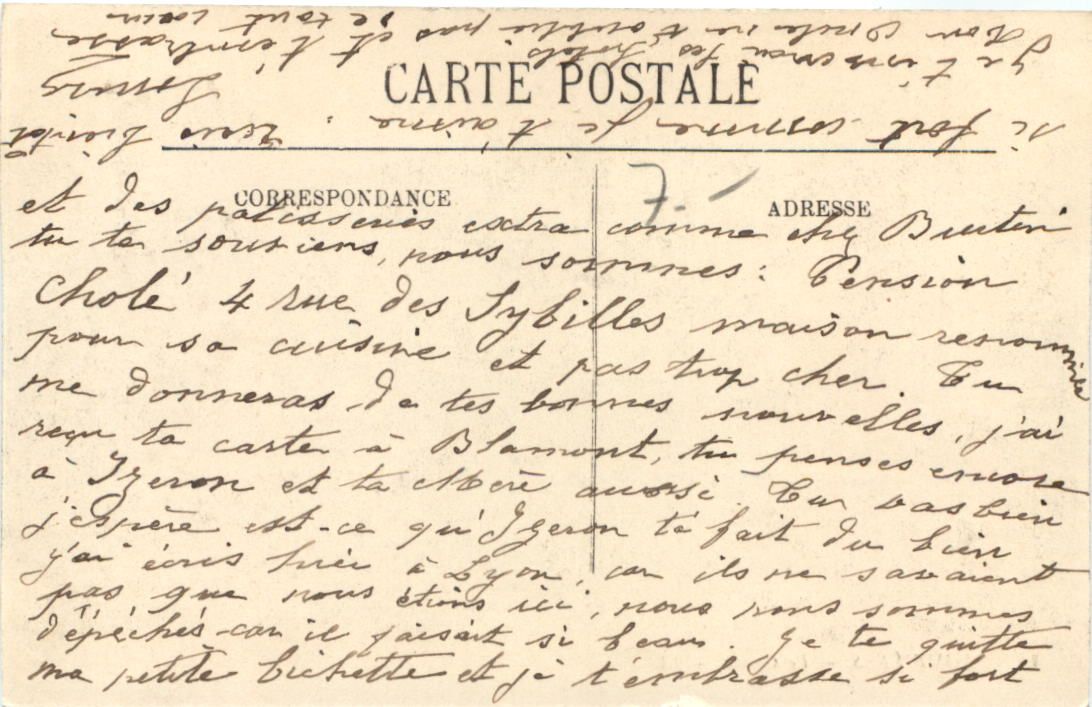 CARTE POSTALE
CORRESPONDANCE
ADRESSE
7.-
et des patisseries extra comme chez Buctin
tu te souviens, nous sommes : Pension
Cholé 4 rue des Sybilles maison renommée
pour sa cuisine et pas trop cher. Tu
me donneras de tes bonnes nouvelles, j'ai
reçu ta carte à Blamont, tu penses encore
à Izeron et ta Mère aussi. Tu vas bien
j'espère est-ce qu'Izeron te fait du bien
j'ai écris hier à Lyon, car ils ne savaient
pas que nous étions ici, nous nous sommes
dépéchés car il faisait si beau. Je te quitte
ma petite bichette et je t'embrasse si fort
si fort comme je t'aime : à bientôt
Je t'envoie des
Ton Oncle ne t'oublie pas et t'embrasse
de tout coeur